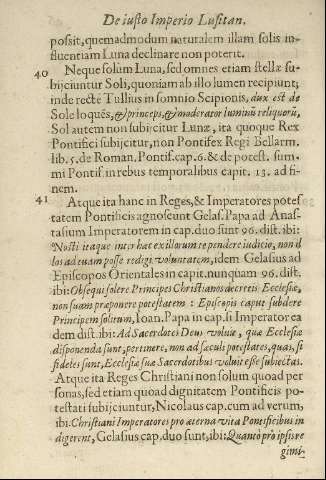 De iusto Imperio Lusitan.
possit, quemadmodum naturalem illam solis in-
fluentiam Luna declinare non poterit.
40 Neque solùm Luna, sed omnes etiam stellæ su-
bijciuntur Soli, quoniam ab illo lumen recipiunt;
inde rectè Tullius in somnio Scipionis, dux est de
Sole loquēs, & princeps, & moderator luminū reliquorū,
Sol autem non subijcitur Lunæ, ita quoque Rex
Pontifici subijcitur, non Pontifex Regi Bellarm.
lib. 5. de Roman. Pontif. cap. 6. & de potest. sum.
mi Pontif in rebus temporalibus capit. 13. ad fi-
nem.
41 Atque ita hanc in Reges, & Imperatores potes
tatem Pontificis agnoscunt Gelas. Papa ad Anas-
tasium Imperatorem in cap. duo sunt 96. dist. ibi:
Nosti itaque inter hæc ex illorum te pendere iudicio, non il
los ad tuam posse redigi voluntatem, idem Gelasius ad
Episcopos Orientales in capit. nunquam 96. dist.
ibi: Obsequi solere Principes Christianos decretis Ecclesiæ,
non suam præponere potestatem: Episcopis caput subdere
Principem solitum, Ioan. Papa in cap. si Imperator ea
dem dist. ibi: Ad Sacerdotes Deus voluit, quæ Ecclesiæ
disponenda sunt, pertinere, non ad sæculi potestates, quas, si
fideles sunt, Ecclesiæ suæ Sacerdotibus voluit esse subiectas.
Atque ita Reges Christiani non solum quoad per
sonas, sed etiam quoad dignitatem Pontificis po-
testati subijciuntur, Nicolaus cap. cum ad verum,
ibi: Christiani Imperatores pro æterna vita Pontificibus in
digerent, Gelasius cap. duo sunt, ibi: Quantò pro ipsis re
gimi-